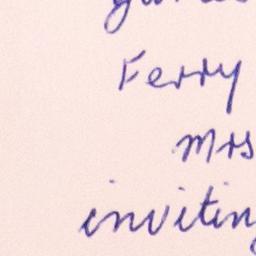 Ferry
Mrs
inviting